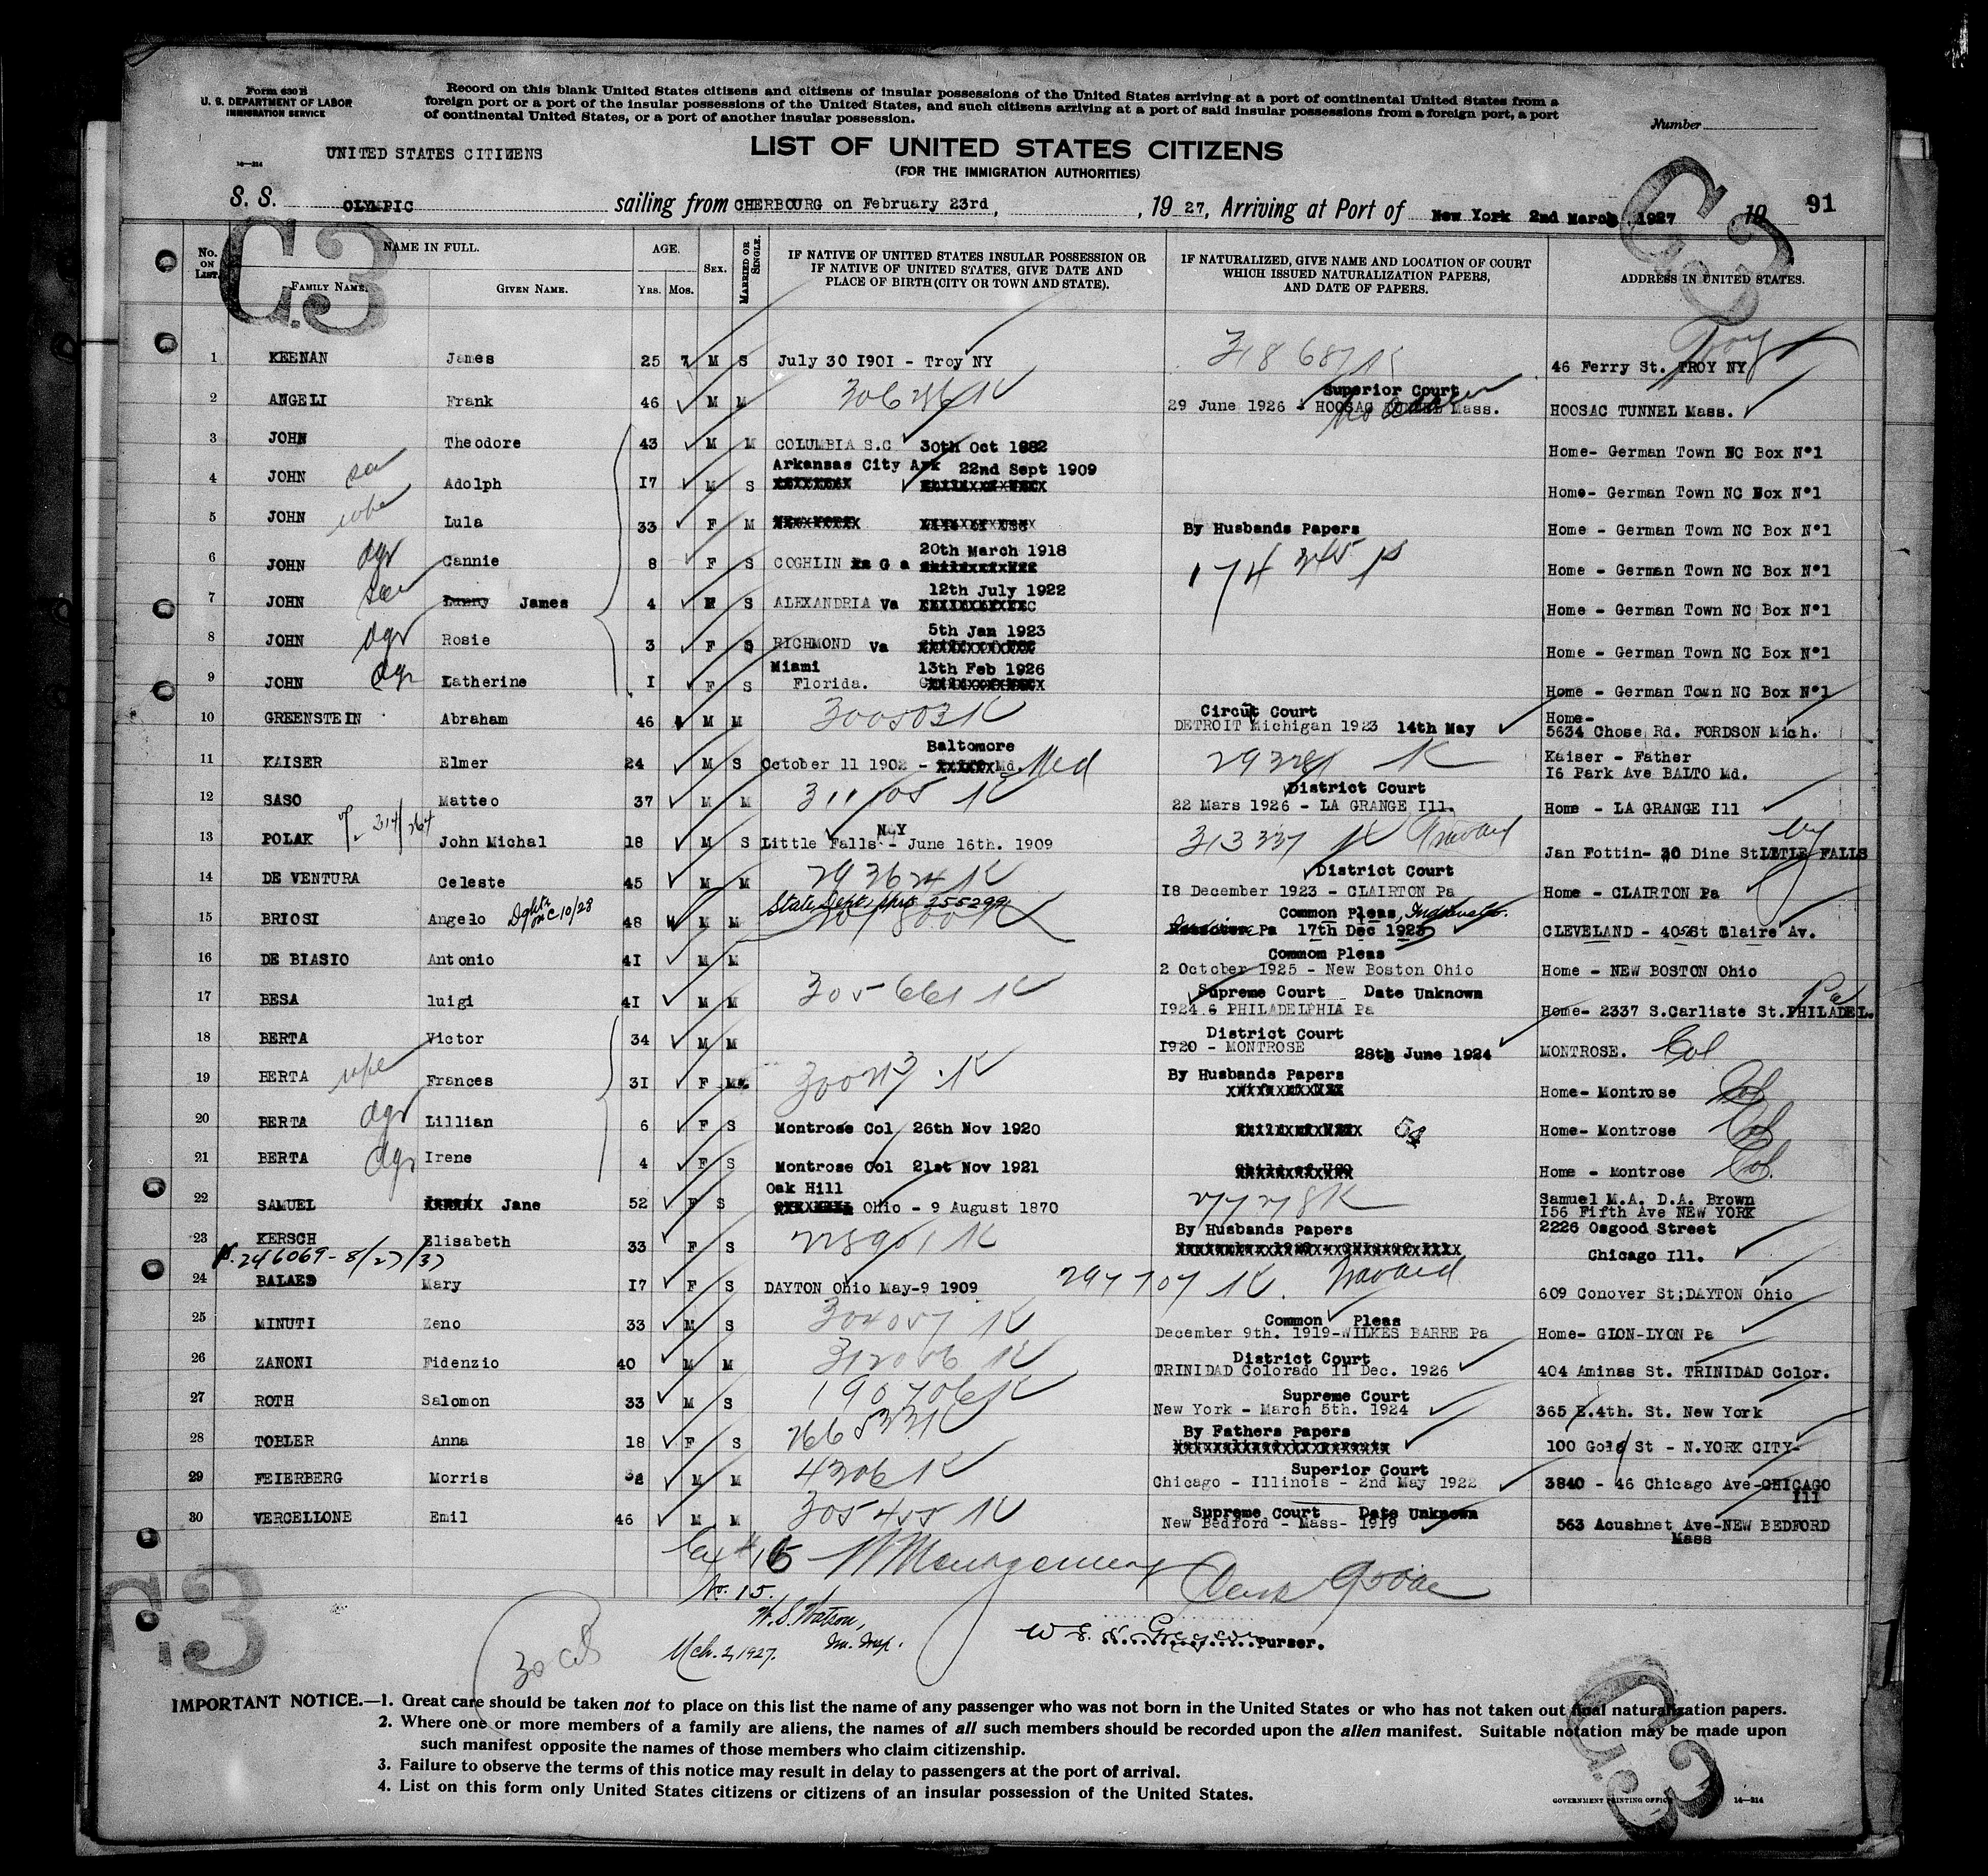 Form 630 B
U. S. DEPARTMENT OF LABOR
IMMIGRATION SERVICE
Record on this blank United States citizens and citizens of insular possessions of the United States arriving at a port of continental United States from a
foreign port or a port of the insular possessions of the United States, and such citizens arriving at a port of said insular possessions from a foreign port, a port
of continental United States, or a port of another insular possession.
Number
14—314
UNITED STATES CITIZENS
LIST OF UNITED STATES CITIZENS
(FOR THE IMMIGRATION AUTHORITIES)
S. S. OLYMPIC sailing from CHERBOURG on February 23rd, , 19 27, Arriving at Port of New York 2nd March 1927 19 91
G.3
G.3
No. ON LIST. NAME IN FULL. FAMILY NAME. GIVEN NAME. AGE. YRS. MOS. SEX. MARRIED OR SINGLE. IF NATIVE OF UNITED STATES INSULAR POSSESSION OR IF NATIVE OF UNITED STATES, GIVE DATE AND PLACE OF BIRTH (CITY OR TOWN AND STATE). IF NATURALIZED, GIVE NAME AND LOCATION OF COURT WHICH ISSUED NATURALIZATION PAPERS, AND DATE OF PAPERS. ADDRESS IN UNITED STATES.
1 KEENAN James 25 7 M S July 30 1901 - Troy NY 318687 K 46 Ferry St. TROY NY Troy
2 ANGELI Frank 46 M M 306286 K Superior Court 29 June 1926 - HOOSAC TUNNEL Mass. HOOSAC TUNNEL Mass.
3 JOHN Theodore 43 M M COLUMBIA S.C 30th Oct 1882 Home- German Town NC Box N°1
4 JOHN son Adolph 17 M S Arkansas City Ark 22nd Sept 1909 Home- German Town NC Box N°1
5 JOHN wife Lula 33 F M By Husbands Papers Home - German Town NC Box N°1
6 JOHN dgr Cannie 8 F S COGHLIN G a 20th March 1918 174345 Home - German Town NC Box N°1
7 JOHN son James 4 S ALEXANDRIA Va 12th July 1922 Home - German Town NC Box N°1
8 JOHN dgr Rosie 3 F S RICHMOND Va 5th Jan 1923 Home - German Town NC Box N°1
9 JOHN dgr Katherine 1 F S Miami Florida. 13th Feb 1926 Home - German Town NC Box N°1
10 GREENSTEIN Abraham 46 M M 300503 K Circuit Court DETROIT Michigan 1923 14th May Home- 5634 Chose Rd. FORDSON Mich.
11 KAISER Elmer 24 M S October 11 1902 - Baltomore Md. Md Kaiser - Father 16 Park Ave BALTO Md.
12 SASO Matteo 37 M M 311105 K District Court 22 Mars 1926 - LA GRANGE Ill. Home - LA GRANGE Ill
13 POLAK John Michal 18 M S Little Falls - NY June 16th. 1909 313337 K Jan Fottin- 30 Dine St LITLE FALLS NY
14 DE VENTURA Celeste 45 M M 293624 K District Court 18 December 1923 - CLAIRTON Pa Home - CLAIRTON Pa
15 BRIOSI Angelo 48 M M Common Pleas, Pa 17th Dec 1923 CLEVELAND - 405 St Claire Av.
16 DE BIASIO Antonio 41 M M Common Pleas 2 October 1925 - New Boston Ohio Home - NEW BOSTON Ohio
17 BESA luigi 41 M M 305661 K Supreme Court Date Unknown 1924 PHILADELPHIA Pa Home- 2337 S.Carliste St.PHILADEL. Pa
18 BERTA Victor 34 M M District Court 1920 - MONTROSE 28th June 1924 MONTROSE. Col
19 BERTA wife Frances 31 F M By Husbands Papers Home- Montrose Col
20 BERTA dgr Lillian 6 F S Montrose Col 26th Nov 1920 Home- Montrose Col
21 BERTA dgr Irene 4 F S Montrose Col 21st Nov 1921 Home - Montrose Col.
22 SAMUEL Jane 52 F S Oak Hill Ohio - 9 August 1870 Samuel M.A. D.A. Brown 156 Fifth Ave NEW YORK
23 KERSCH Elisabeth 33 F S 228901 K By Husbands Papers 2226 Osgood Street Chicago Ill.
246069 - 8/27/37
24 BALAES Mary 17 F S DAYTON Ohio May-9 1909 297707 K. 609 Conover St; DAYTON Ohio
25 MINUTI Zeno 33 M S 304057 K Common Pleas December 9th. 1919-WILKES BARRE Pa Home- GION-LYON Pa
26 ZANONI Fidenzio 40 M M District Court TRINIDAD Colorado 11 Dec. 1926 404 Aminas St. TRINIDAD Color.
27 ROTH Salomon 33 M S 190706 K Supreme Court New York - March 5th. 1924 365 E.4th. St. New York
28 TOBLER Anna 18 F S By Fathers Papers 100 Gold St - N.YORK CITY-
29 FEIERBERG Morris M M 4306 K Superior Court Chicago - Illinois - 2nd May 1922 3840 - 46 Chicago Ave-CHICAGO Ill
30 VERCELLONE Emil 46 M M 305455 K Supreme Court Date Unknown New Bedford - Mass- 1919 563 Acushnet Ave-NEW BEDFORD Mass
No. 15.
W. S. Watson,
Im. Insp.
Mch. 2, 1927.
Purser.
G.3
30
IMPORTANT NOTICE.—1. Great care should be taken not to place on this list the name of any passenger who was not born in the United States or who has not taken out final naturalization papers.
2. Where one or more members of a family are aliens, the names of all such members should be recorded upon the alien manifest. Suitable notation may be made upon
such manifest opposite the names of those members who claim citizenship.
3. Failure to observe the terms of this notice may result in delay to passengers at the port of arrival.
4. List on this form only United States citizens or citizens of an insular possession of the United States.
GOVERNMENT PRINTING OFFICE 14—314
G.3